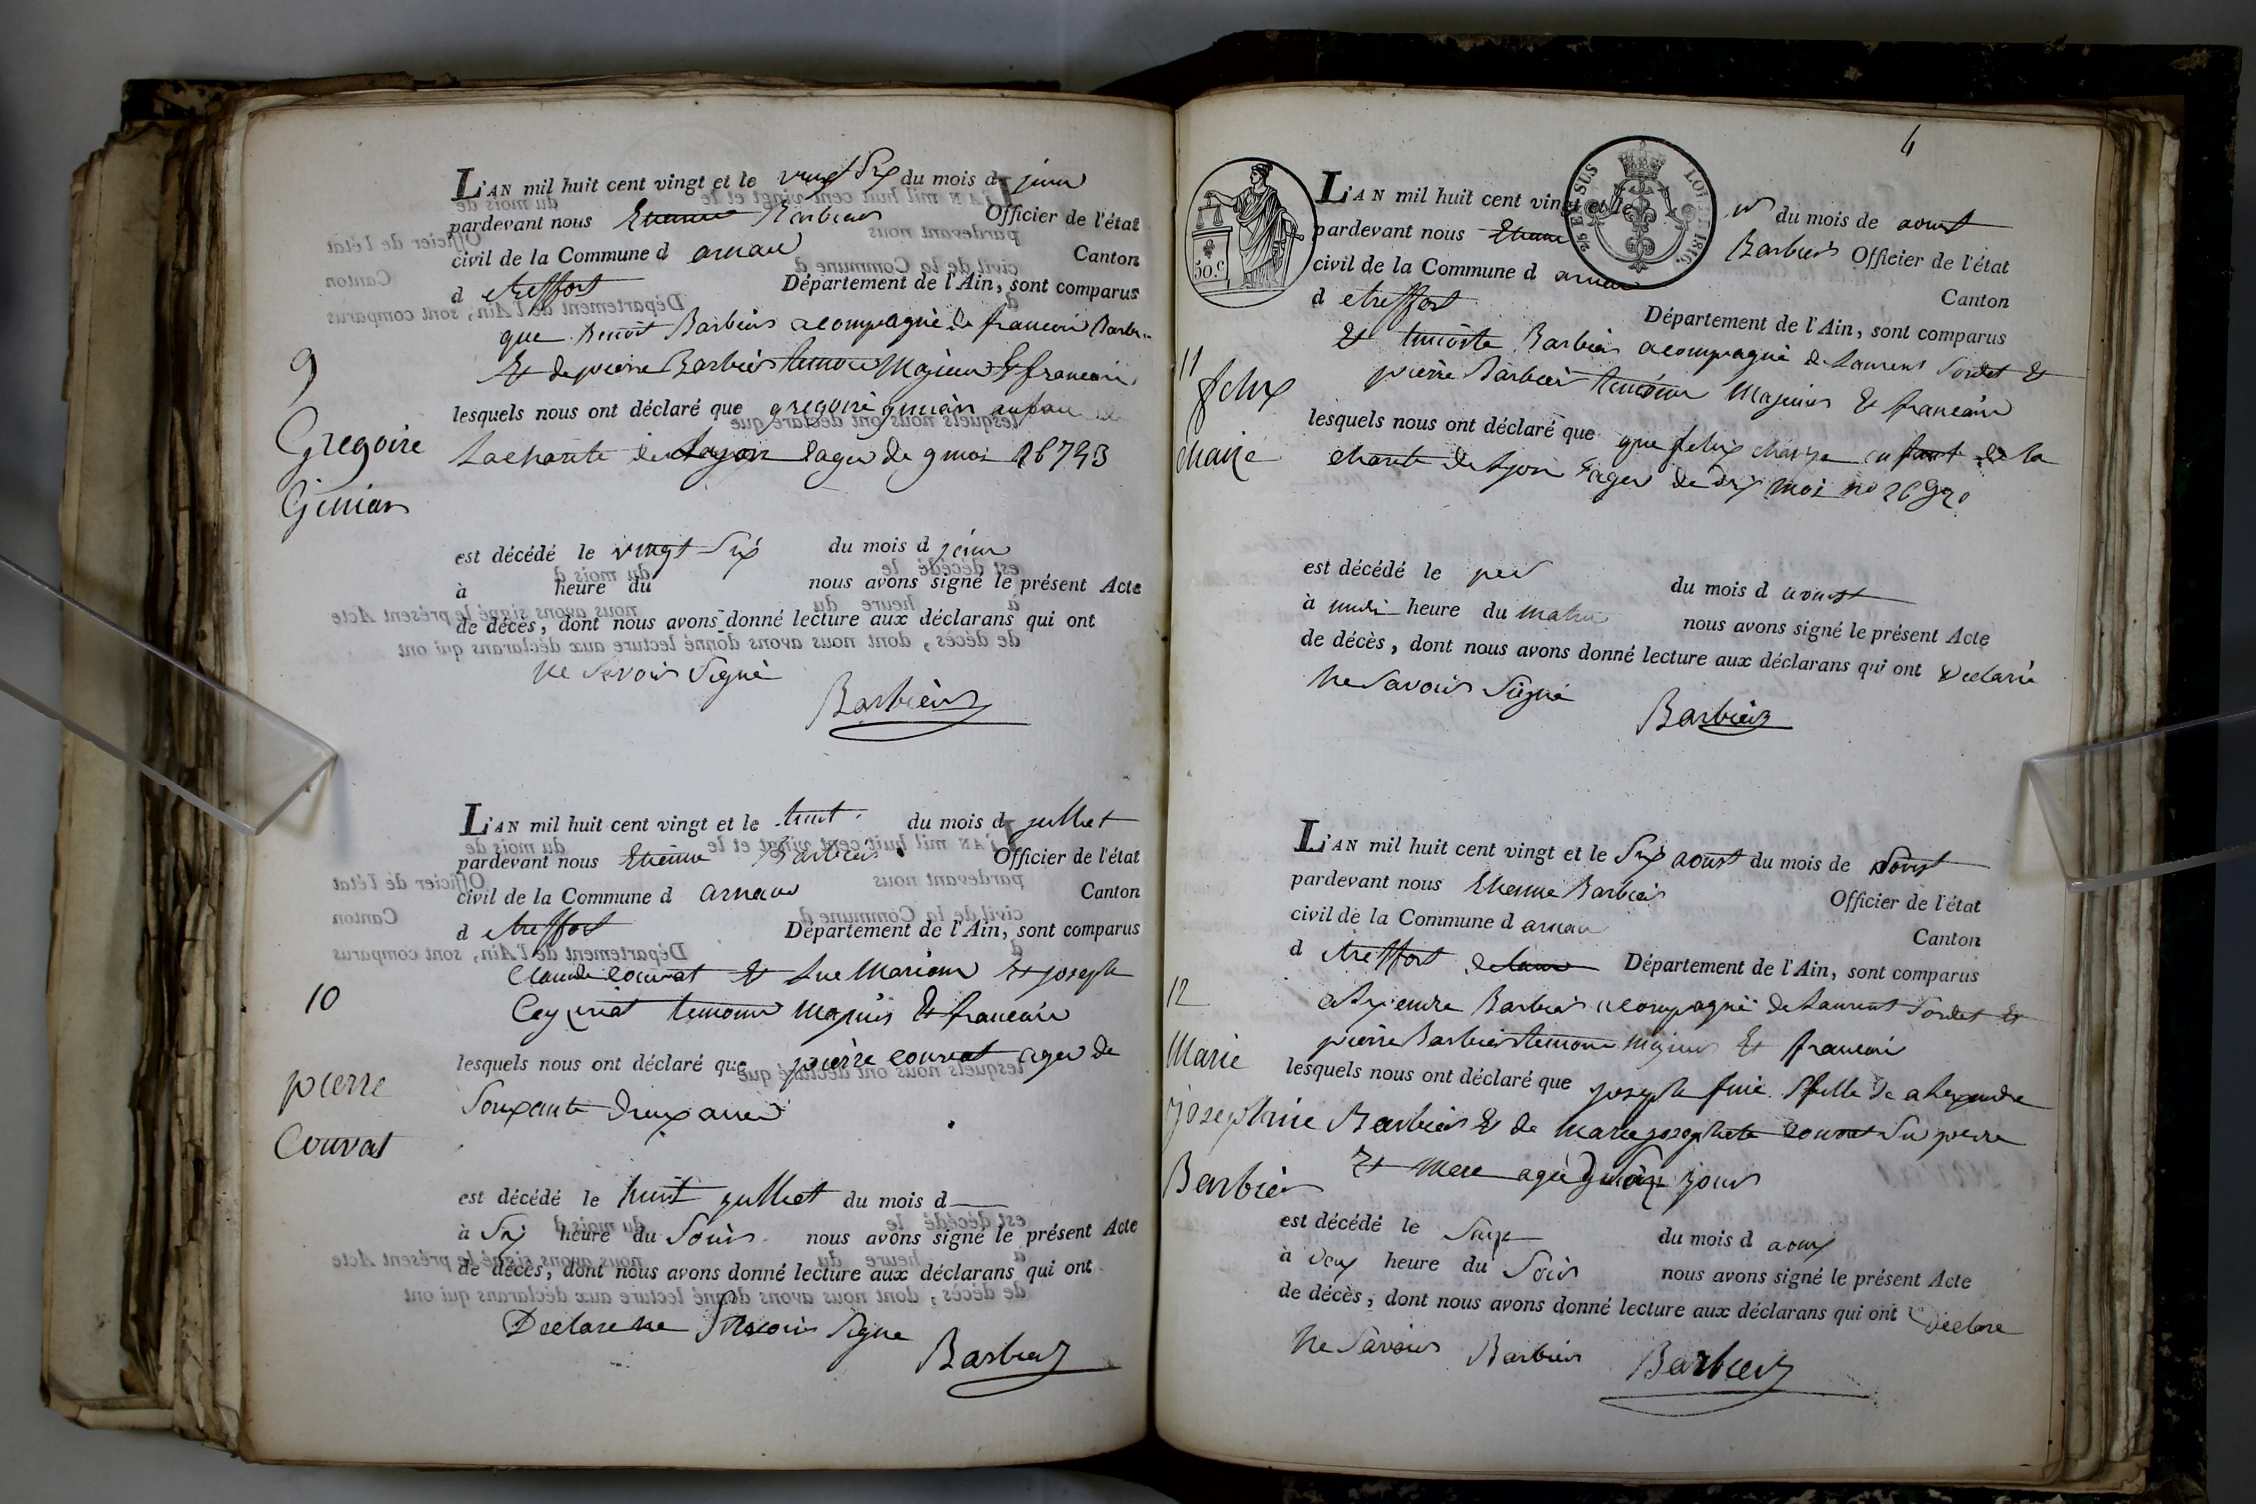 L'AN mil huit cent vingt et le vingt Six du mois d juin
pardevant nous Etienne Barbier Officier de l'état
civil de la Commune d arnau Canton
d etreffort Département de l'Ain, sont comparus
que Benoit Barbier acompagné de francoi Barbi..
Et de pierre Barbier temoin Majeur Et francoi
9
Gregoire
Ginian
lesquels nous ont déclaré que gregoire ginian anfan de
Lacharite de Layon Lager de 9 moi 16793
est décédé le vingt Six du mois d juin
à heure du nous avons signé le présent Acte
de décès, dont nous avons donné lecture aux déclarans qui ont
ne Savoir Signé
Barbier
L'AN mil huit cent vingt et le huit du mois d julliet
pardevant nous Etienne Barbier Officier de l'état
civil de la Commune d arnau Canton
d etreffort Département de l'Ain, sont comparus
Claude couvat Et Marion Et joseph
Ceyzeriat temoin Majeur Et francoi
10
pierre
Couvat
lesquels nous ont déclaré que pierre couvat ager de
Souxante Deux anné
est décédé le huit julliet du mois d
à Six heure du Soir nous avons signé le présent Acte
de décès, dont nous avons donné lecture aux déclarans qui ont
Declare ne Savoir Signe
Barbier
4
50.c
25 EN SUS LOI DE 1816.
L'AN mil huit cent vingt et le du mois de aoust
pardevant nous Etienne Barbier Officier de l'état
civil de la Commune d arnau Canton
d etreffort Département de l'Ain, sont comparus
Et Barbier acompagné de Laurent Sordet Et
pierre Barbier temoin Majeur Et francoin
11
felix
chaize
lesquels nous ont déclaré que que felix chaize enfant de la
charite de Lyon ager de Six moi no 26920
est décédé le du mois d avoust
à midi heure du matin nous avons signé le présent Acte
de décès, dont nous avons donné lecture aux déclarans qui ont Declaré
Ne Savoir Signé
Barbier
L'AN mil huit cent vingt et le Six aoust du mois de
pardevant nous Etienne Barbier Officier de l'état
civil de la Commune d arnau Canton
d etreffort Département de l'Ain, sont comparus
Barbier acompagné de Laurent Sordet Et
pierre Barbier temoin Majeur Et francoi
12
Marie
josephine
Barbier
lesquels nous ont déclaré que joseph fine fille de alexendre
Barbier Et de Marie josephete couvat Su perre
Et Mere agé jour
est décédé le du mois d aoux
à Deux heure du Soir nous avons signé le présent Acte
de décès, dont nous avons donné lecture aux déclarans qui ont declare
Ne Savoir Barbier Barbier